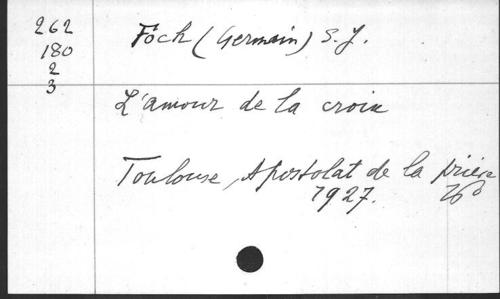 262
180
2
3
Foch (Germain) S. J.
L'amour de la croix
Toulouse, Apostolat de la prière
1927. 16°